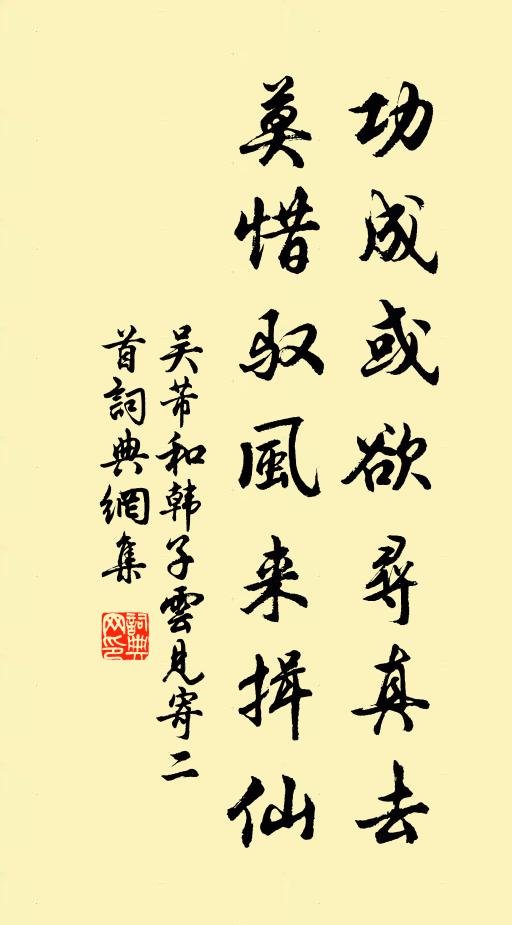 功成或欲尋真去
莫惜驭風来揖仙
吴芾和韩子雲見寄二
首詞典網集
詞典网印